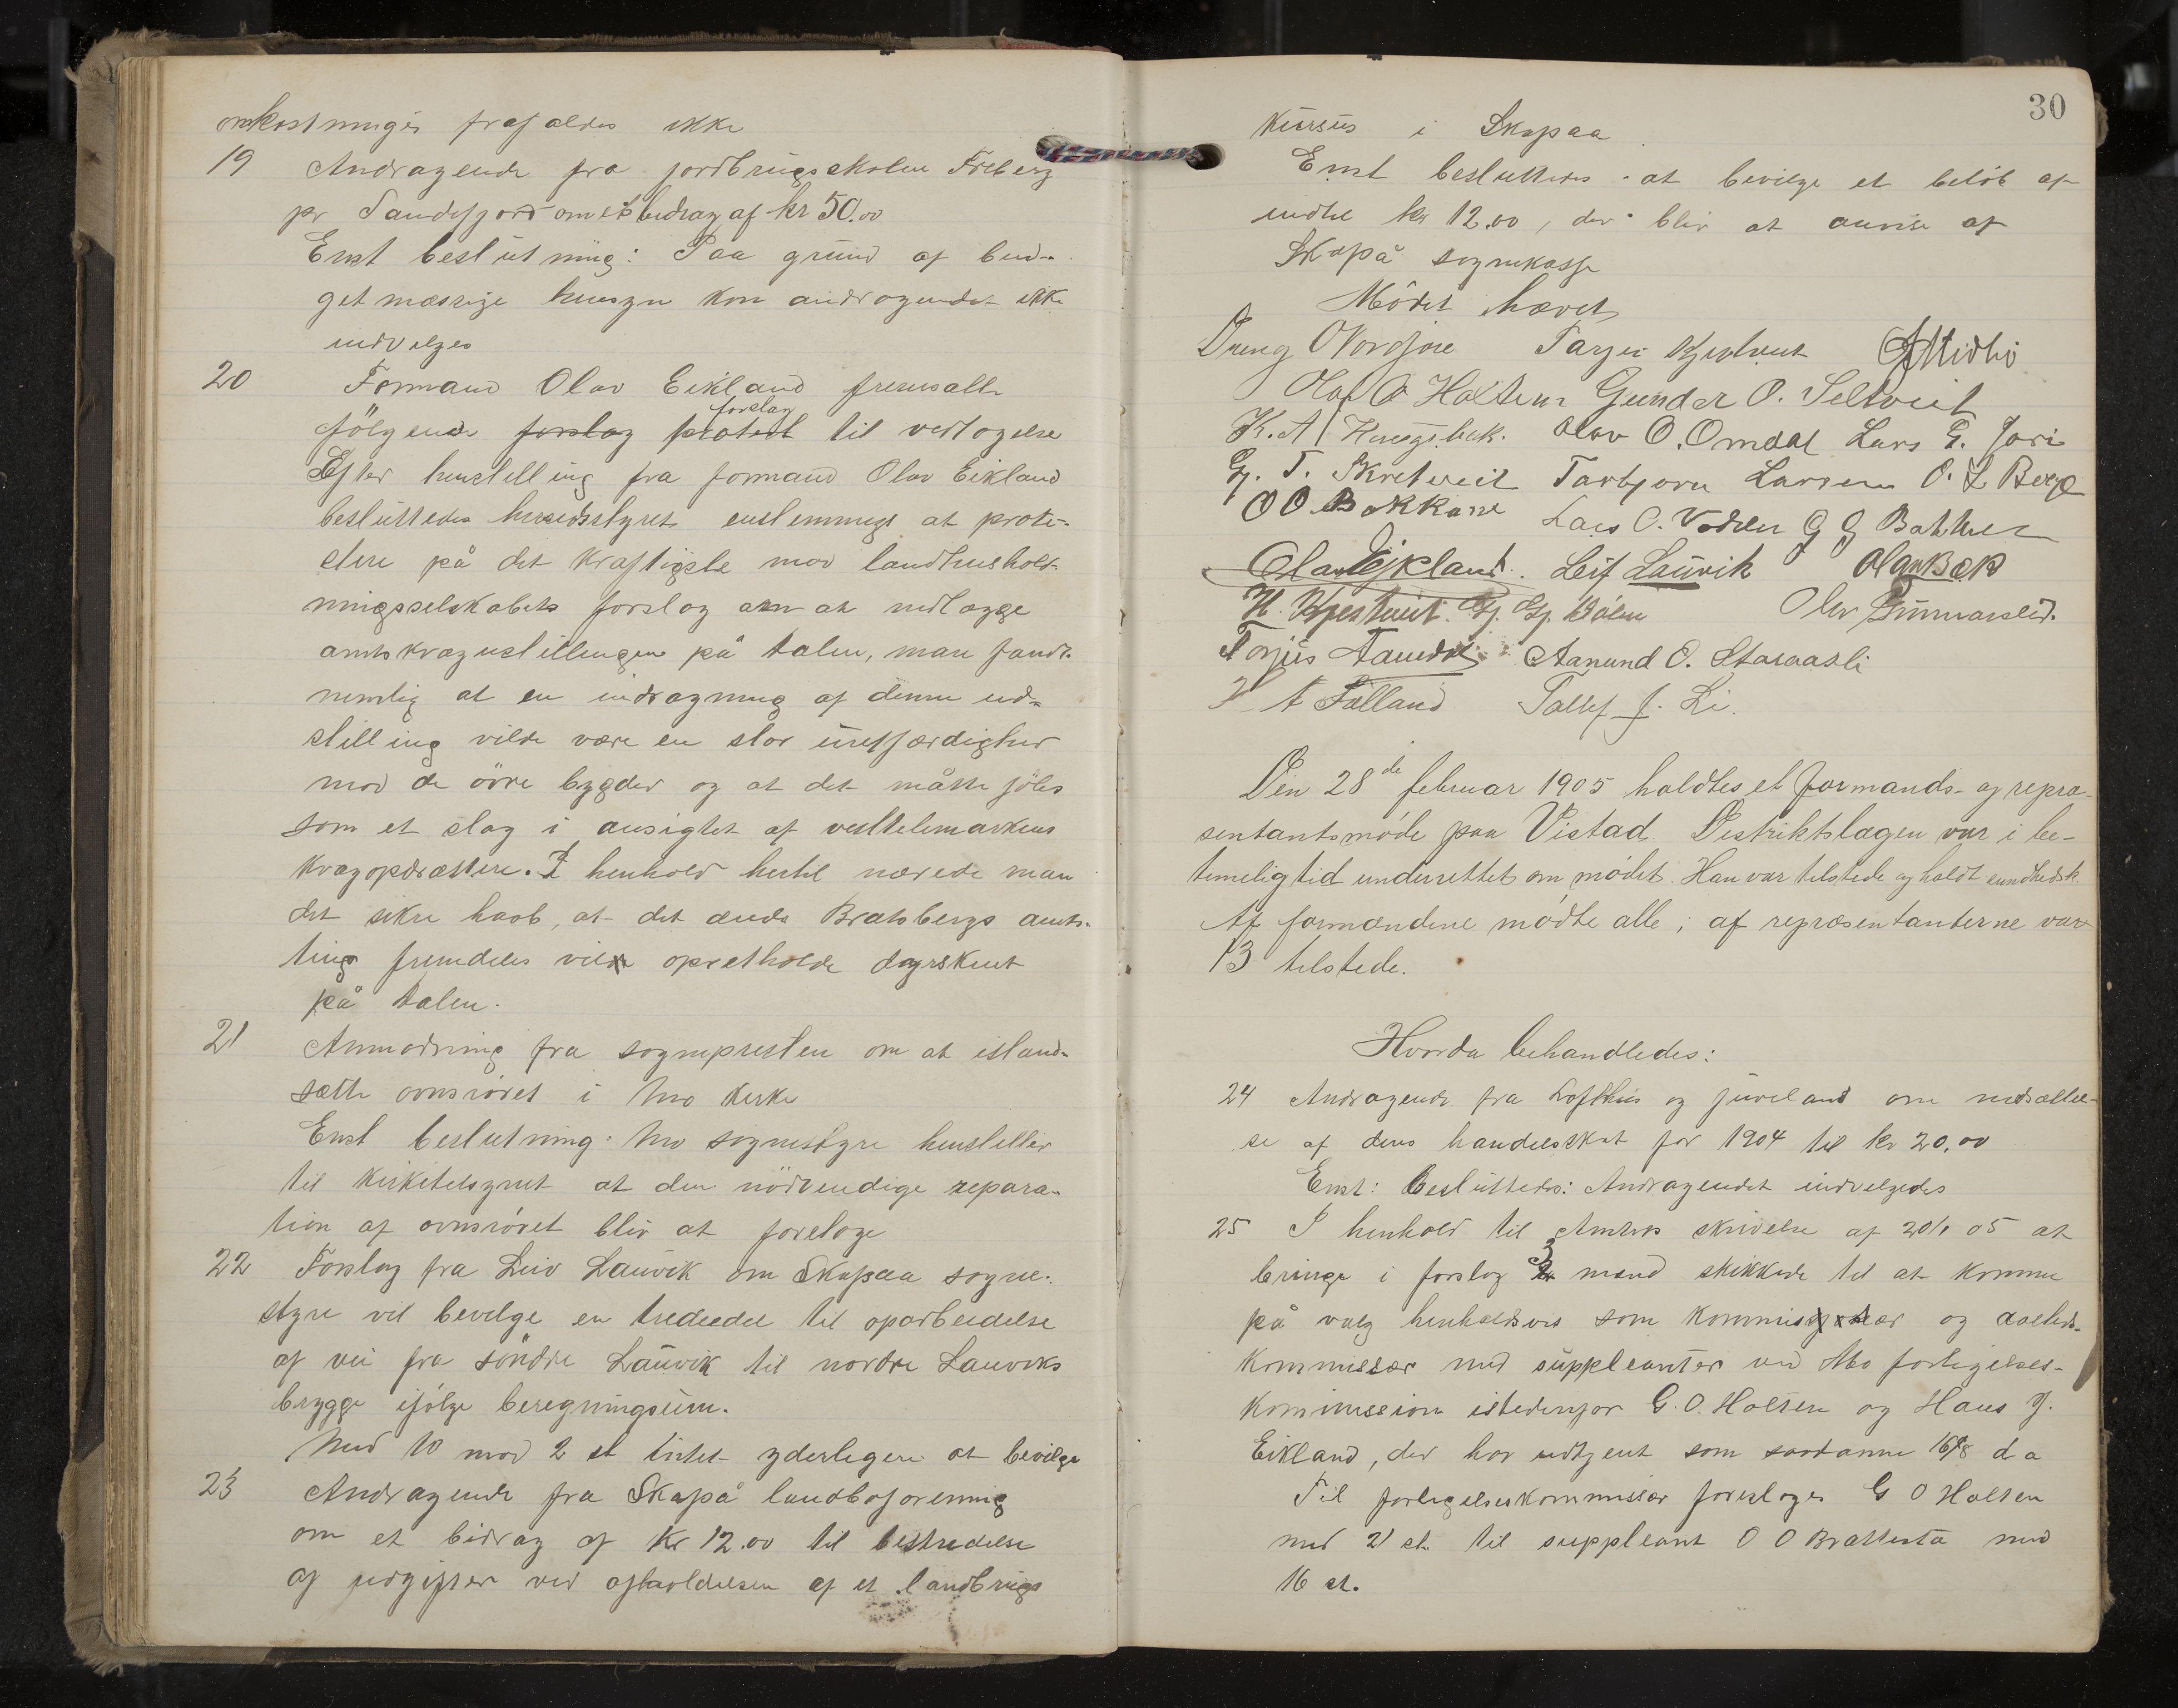 omkostninger frafaldes ikke
19 Andragende fra jordbrugsskolen Freberg
pr Sandefjord om et bidrag af kr 50.00
Enst beslutning: Paa grund af bud-
getmæssige hensyn kan andragendet ikke
indvilges
20 Formand Olav Eikland fremsatte
følgende forslag protest til vedtagelse
forslag
Efter henstilling fra formand Olav Eikland
besluttedes herredsstyret enstemmigt at prote-
stere på det kraftigste mod landhushold-
ningsselskabets forslag om at nedlægge
amtskvægustillingen på Dalen, man fandt
nemlig at en inddragning af denne ud-
stilling vilde være en stor uretfærdighed
mod de øvre bygder og at det måtte føles
som et slag i ansigtet af vesttelemarkens
kvægopdrættere. I henhold hertil nærede man
det sikre haab, at det ærede Bratsbergs amts-
ting fremdeles vilde opretholde dyrskuet
på Dalen.
21 Anmodning fra sognepresten om at istand-
sætte ovnsrøret i Mo kirke
Enst beslutning: Mo sognestyre henstiller
til kirketilsynet at den nødvendige repara-
tion af ovnsrøret blir at foretage
22 Forslag fra Leiv Lauvik om Skafsaa sogne-
styre vil bevilge en trediedel til oparbeidelse
af vei fra søndre Lauvik til nordre Lauviks
brygge ifølge beregningsum.
Med 10 mod 2 st intet yderligere at bevilge
23 Andragende fra Skafså landboforening
om et bidrag af kr 12.00 til bestridelse
af udgifter ved afholdelsen af et landbrugs
30
kursus i Skafsaa.
Enst besluttedes at bevilge et beløb af
indtil kr 12.00, der blir at anvise af
Skafså sognekasse
Mødet hævet
Dreng O Nordjore Tarjei
Olaf O Holten Gunder O. Seltveit
K. A. Olav O. Omdal Lars G. Jori
G. T. Skretveit Tarbjørn Larsen O. L. Berge
O O Bakkane Lars O. Vodden G G Bakken
Olav Ejkland. Leif Lauvik Olav Bæk
H. Gj. Gj. Dølen Olav Gunnarslid.
Torjus Aamdal Aanund O. Staraasli
H A Fælland Tallef J. Li.
Den 28de februar 1905 holdtes et formands- og repræ-
sentantsmøde paa Vistad. Distriktslægen var i be-
timelig tid underrettet om mødet. Han var tilstede og holdt sundhedsk.
Af formændene mødte alle; af repræsentanterne var
13 tilstede.
Hvorda behandledes:
24 Andragende fra Lofthus og Juveland om nedsættel-
se af deres handelsskat for 1904 til kr 20,00
Enst: besluttedes: Andragendet indvilgedes
25 I henhold til Amtets skrivelse af 20/1 05 at
bringe i forslag 3 mænd skikkede til at komme
på valg henholdsvis som kommissær og
kommissær med suppleanter ved Mo forligelses-
kommission istedenfor G. O. Holten og Hans G.
Eikland, der har udtjent som saadanne 16/8 d a
Til forligelseskommissær foresloges G O Holten
med 21 st. til suppleant O O Brattestå med
16 st.